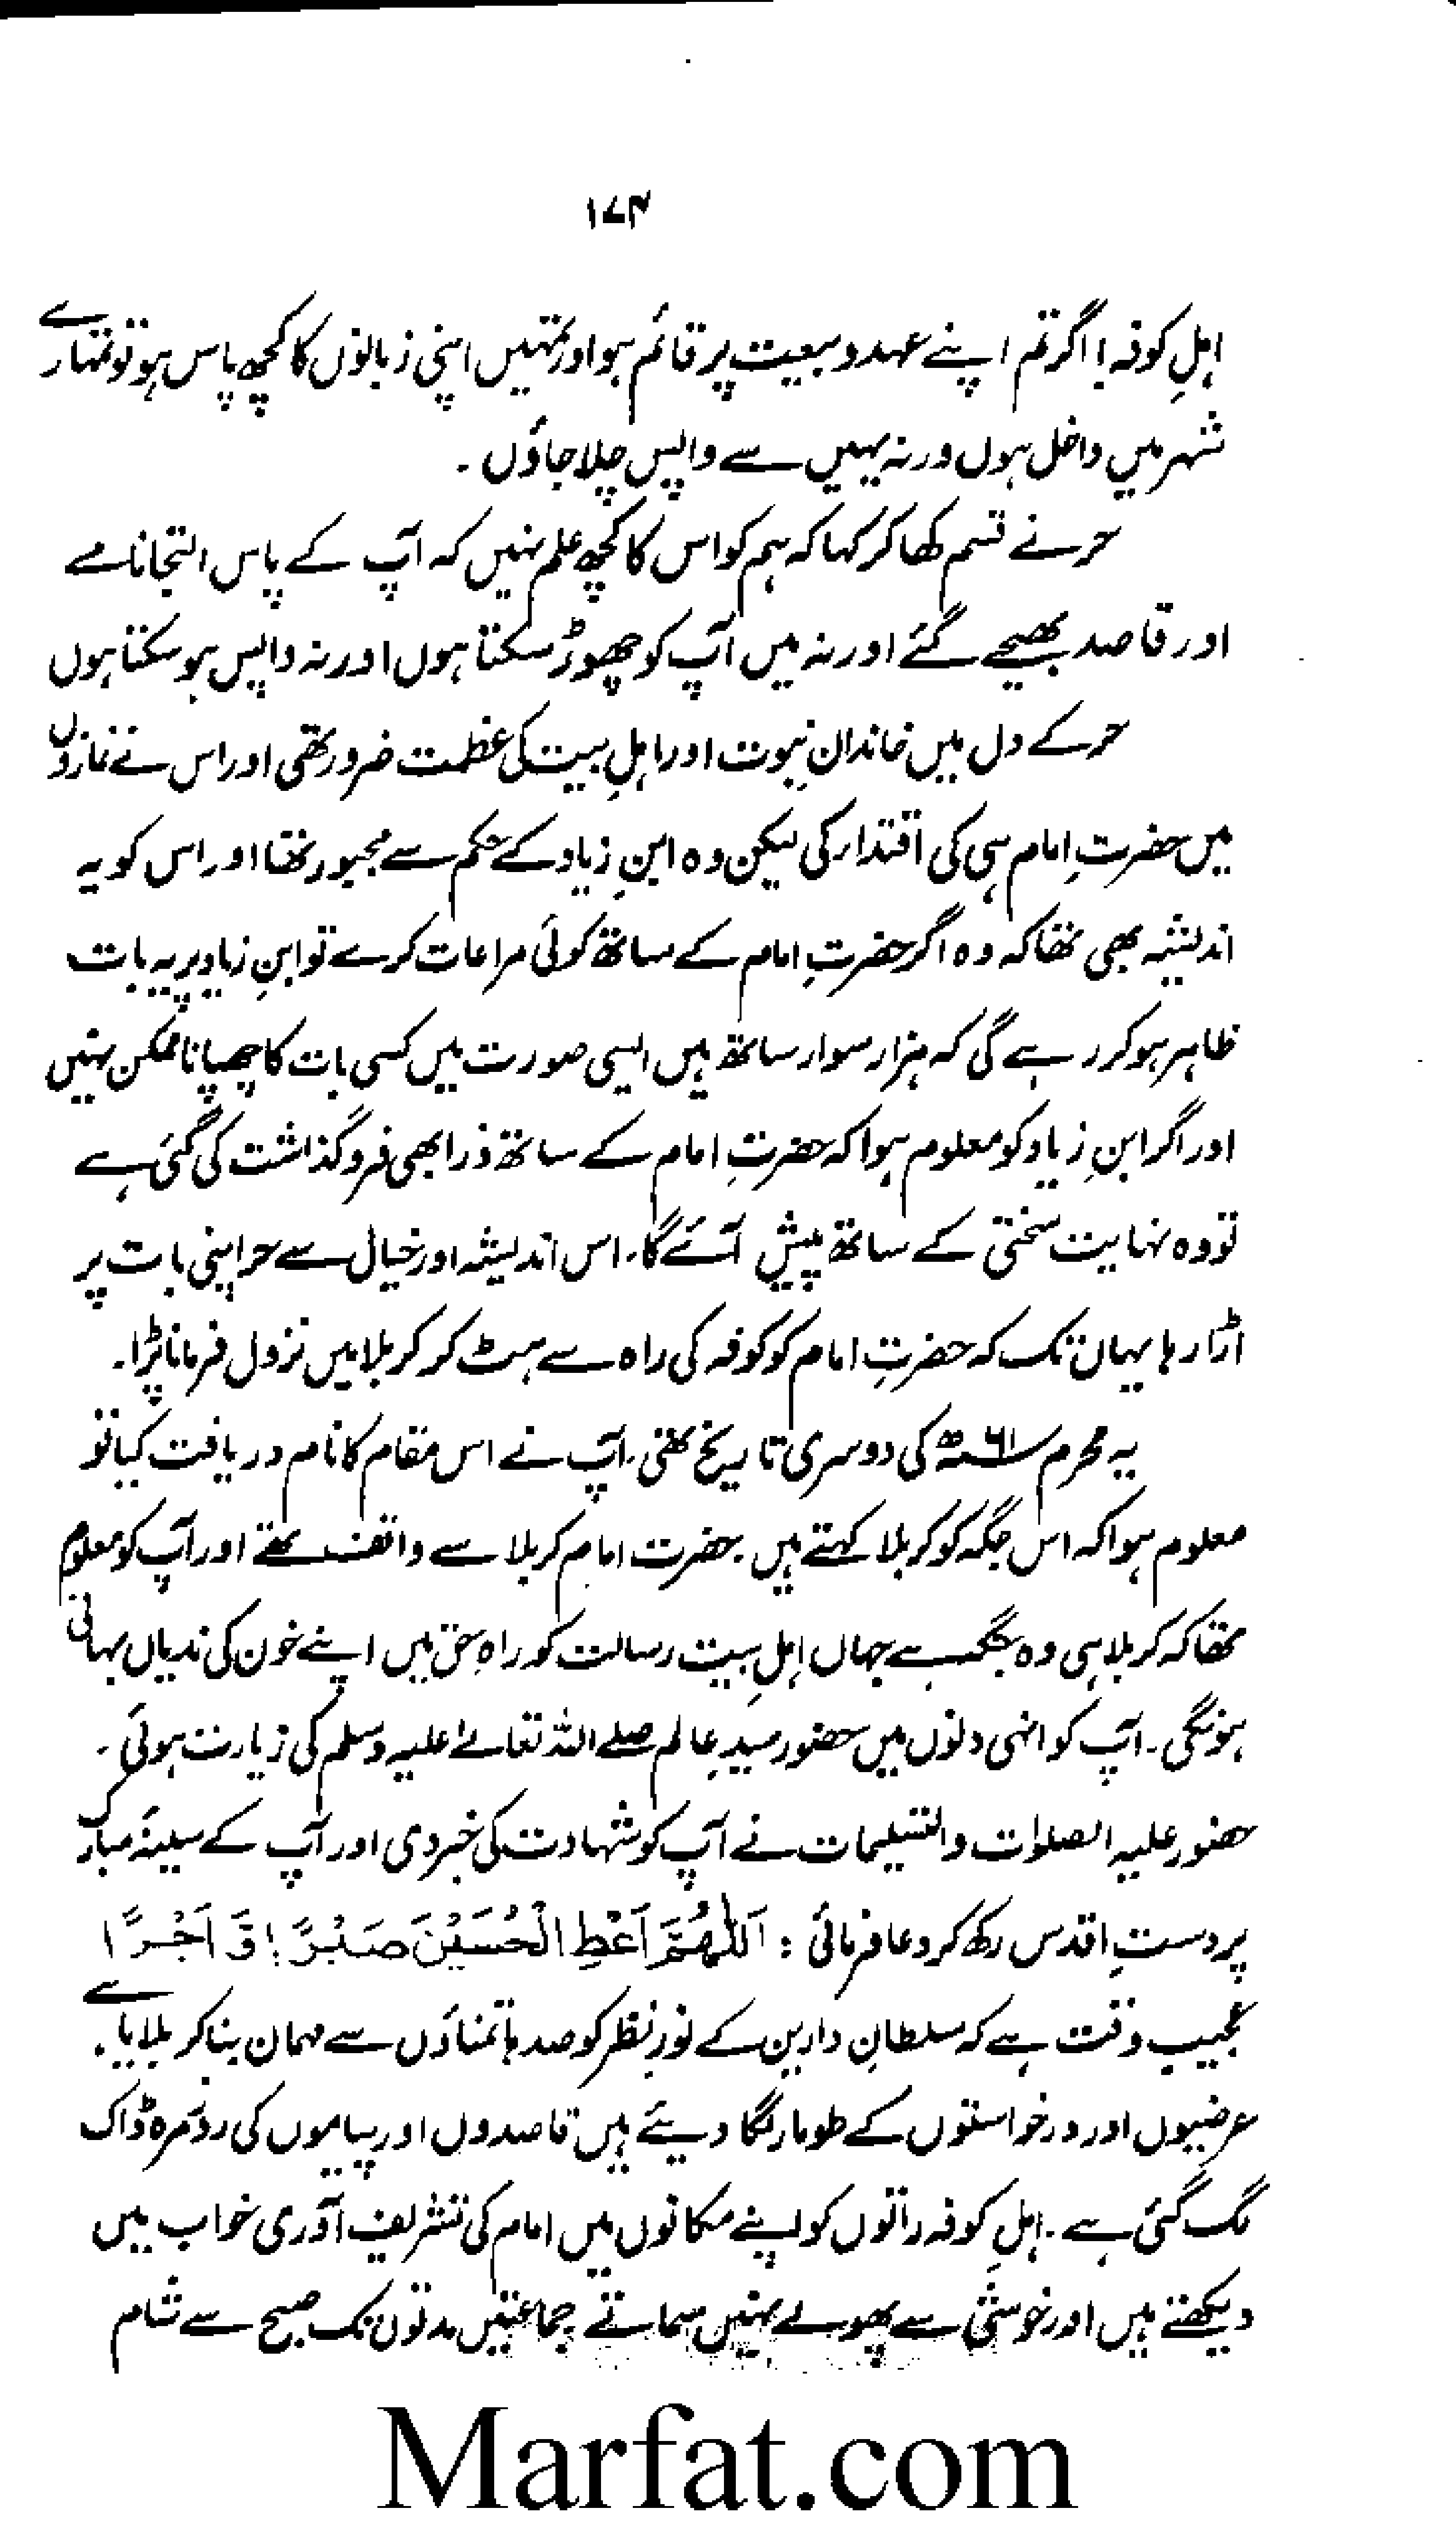 ۱۷۴
اہلِ کوفہ! اگر تم اپنے عہد و بیعت پر قائم ہو اور تمہیں اپنی زبانوں کا کچھ پاس ہو تو تمہارے
شہر میں داخل ہوں ورنہ یہیں سے واپس چلا جاؤں ۔
حر نے قسم کھا کر کہا کہ ہم کو اس کا کچھ علم نہیں کہ آپ کے پاس التجا نامے
اور قاصد بھیجے گئے اور نہ میں آپ کو چھوڑ سکتا ہوں اور نہ واپس ہو سکتا ہوں
حر کے دل میں خاندانِ نبوت اور اہلِ بیت کی عظمت ضرور تھی اور اس نے نمازوں
میں حضرتِ امام ہی کی اقتدار کی لیکن وہ ابنِ زیاد کے حکم سے مجبور تھا اور اس کو یہ
اندیشہ بھی تھا کہ وہ اگر حضرتِ امام کے ساتھ کوئی مراعات کرے تو ابنِ زیاد پر یہ بات
ظاہر ہو کر رہے گی کہ ہزار سوار ساتھ ہیں ایسی صورت میں کسی بات کا چھپانا ممکن نہیں
اور اگر ابنِ زیاد کو معلوم ہوا کہ حضرتِ امام کے ساتھ ذرا بھی فروگذاشت کی گئی ہے
تو وہ نہایت سختی کے ساتھ پیش آئے گا۔ اس اندیشہ اور خیال سے حر اپنی بات پر
اڑا رہا یہاں تک کہ حضرتِ امام کو کوفہ کی راہ سے ہٹ کر کربلا میں نزول فرمانا پڑا۔
یہ محرم ۶۱ھ کی دوسری تاریخ تھی۔ آپ نے اس مقام کا نام دریافت کیا تو
معلوم ہوا کہ اس جگہ کو کربلا کہتے ہیں۔ حضرت امام کربلا سے واقف تھے اور آپ کو معلوم
تھا کہ کربلا ہی وہ جگہ ہے جہاں اہلِ بیت رسالت کو راہِ حق میں اپنے خون کی ندیاں بہانی
ہونگی۔ آپ کو انہی دنوں میں حضور سیدِ عالم صلے اللہ تعالےٰ علیہ وسلم کی زیارت ہوئی۔
حضور علیہ الصلوٰت والتسلیمات نے آپ کو شہادت کی خبر دی اور آپ کے سینۂ مبارک
پر دستِ اقدس رکھ کر دعا فرمائی : اَللّٰھُمَّ اَعْطِ الْحُسَیْنَ صَبْرًا وَّ اَجْرًا
عجیب وقت ہے کہ سلطانِ دارین کے نورِ نظر کو صدہا تمناؤں سے مہمان بنا کر بلایا ہے۔
عرضیوں اور درخواستوں کے طومار لگا دیئے ہیں قاصدوں اور پیاموں کی روزمرہ ڈاک
لگ گئی ہے۔ اہلِ کوفہ راتوں کو اپنے مکانوں میں امام کی تشریف آوری خواب میں
دیکھتے ہیں اور خوشی سے پھولے نہیں سماتے جماعتیں مدتوں تک صبح سے شام
Marfat.com